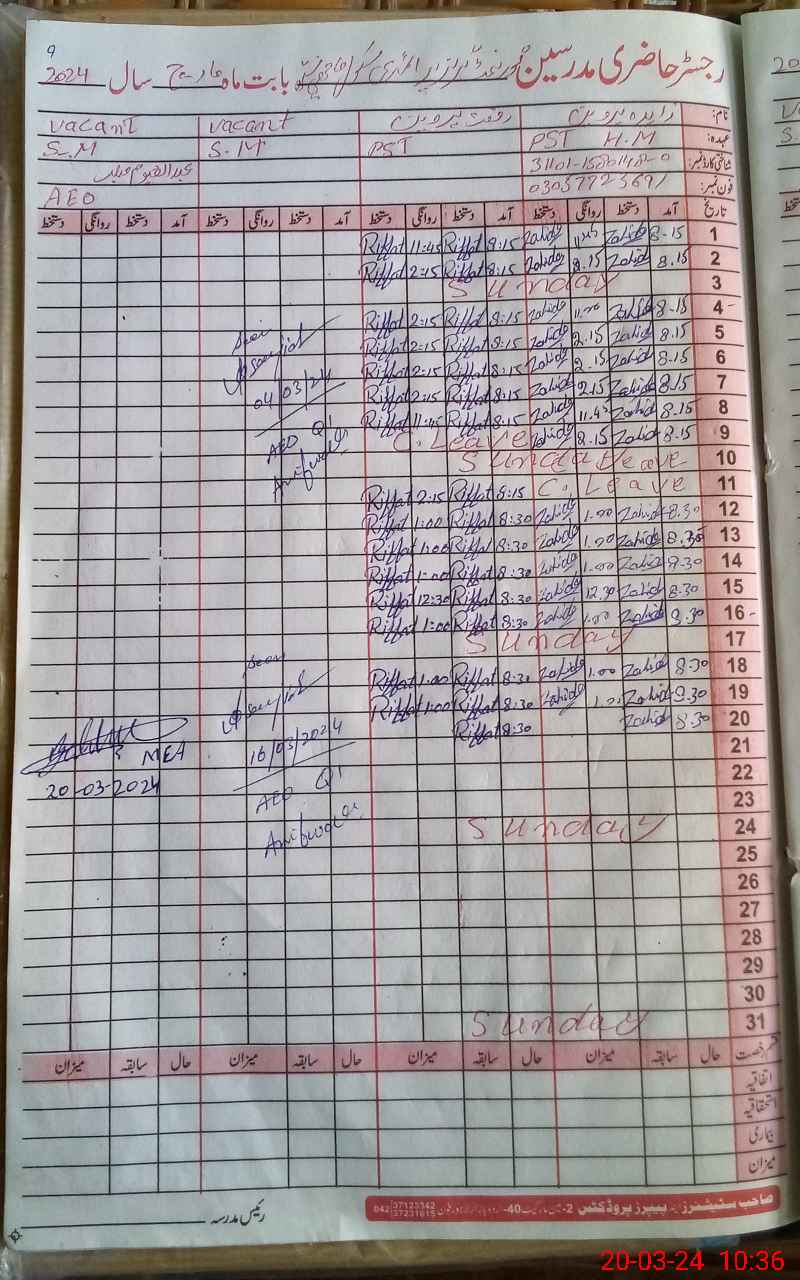 9
رجسٹر حاضری مدرسین بابت ماہ مارچ سال 2024
نام: زاہدہ پروین رفعت پروین vacant vacant
عہدہ: PST H.M PST S.M S.M
شناختی کارڈ نمبر: عبدالقیوم
فون نمبر: 03037723691 AEO
تاریخ آمد دستخط روانگی دستخط آمد دستخط روانگی دستخط آمد دستخط روانگی دستخط آمد دستخط روانگی دستخط
1 8-15 Zahida Zahida 8:15 Riffat 11:45 Riffat
2 8.15 Zahida 8.15 Zahida 8:15 Riffat 2:15 Riffat
3 Sunday
4 8-15 Zahida 11.00 Zahida 8:15 Riffat 2:15 Riffat
5 8.15 Zahida 2.15 Zahida 8:15 Riffat 2:15 Riffat
6 8.15 Zahida 2.15 Zahida 8:15 Riffat 2:15 Riffat
7 8.15 Zahida 2.15 Zahida 8:15 Riffat 2:15 Riffat
8 8.15 Zahida 11.45 Zahida 8:15 Riffat 11:45 Riffat
9 8.15 Zahida 8.15 Zahida C. Leave
10 Sunday Leave
11 C. Leave 8:15 Riffat 2:15 Riffat
12 8.30 Zahida 1.00 Zahida 8:30 Riffat 1:00 Riffat
13 8.30 Zahida 1.00 Zahida 8:30 Riffat 1:00 Riffat
14 8.30 Zahida 1.00 Zahida 8:30 Riffat 1:00 Riffat
15 8.30 Zahida 12.30 Zahida 8:30 Riffat 12:30 Riffat
16 8.30 Zahida 1.00 Zahida 8:30 Riffat 1:00 Riffat
17 Sunday
18 8:30 Zahida 1.00 Zahida 8:30 Riffat 1:00 Riffat
19 8.30 Zahida Zahida 8:30 Riffat 1:00 Riffat
20 8.30 Zahida 8:30 Riffat
21
22
23
24 Sunday
25
26
27
28
29
30
31 Sunday
Seen
04/03/24
AEO Q1
Seen
16/03/2024
AEO Q1
MEA
20-03-2024
قسم رخصت حال سابقہ میزان حال سابقہ میزان حال سابقہ میزان حال سابقہ میزان
اتفاقیہ
استحقاقیہ
بیماری
میزان
رئیس مدرسہ
صاحب سٹیشنرز اینڈ پیپرز پروڈکٹس 042 37123342 37231615
20-03-24 10:36